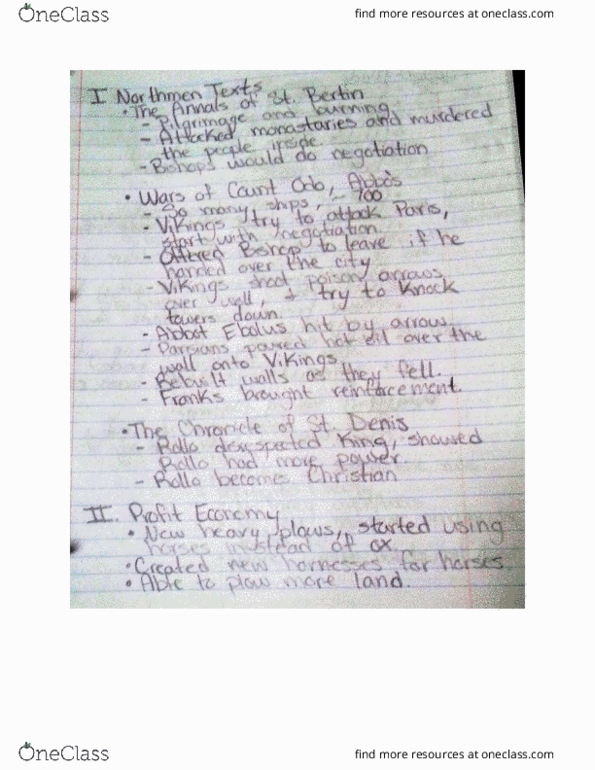 OneClass
find more resources at oneclass.com
I Northmen Texts
• The Annals of St. Bertin
- Pilgrimage and burning
- Attacked monastaries and murdered
the people inside.
- Bishops would do negotiation
• Wars of Count Odo, Abbo's
- So many ships, ~ 700
- Vikings try to attack Paris,
start with negotiation.
- Offered Bishop to leave if he
handed over the city
- Vikings shoot poison arrows
over wall, & try to knock
towers down.
- Abbot Ebolus hit by arrow.
- Parisians poured hot oil over the
wall onto Vikings.
- Rebuilt walls as they fell.
- Franks brought reinforcement.
• The Chronicle of St. Denis
- Rollo king, showed
Rollo had more power.
- Rollo becomes Christian
II. Profit Economy
• New heavy plows, started using
horses instead of ox.
• Created new harnesses for horses
• Able to plow more land.
OneClass
find more resources at oneclass.com